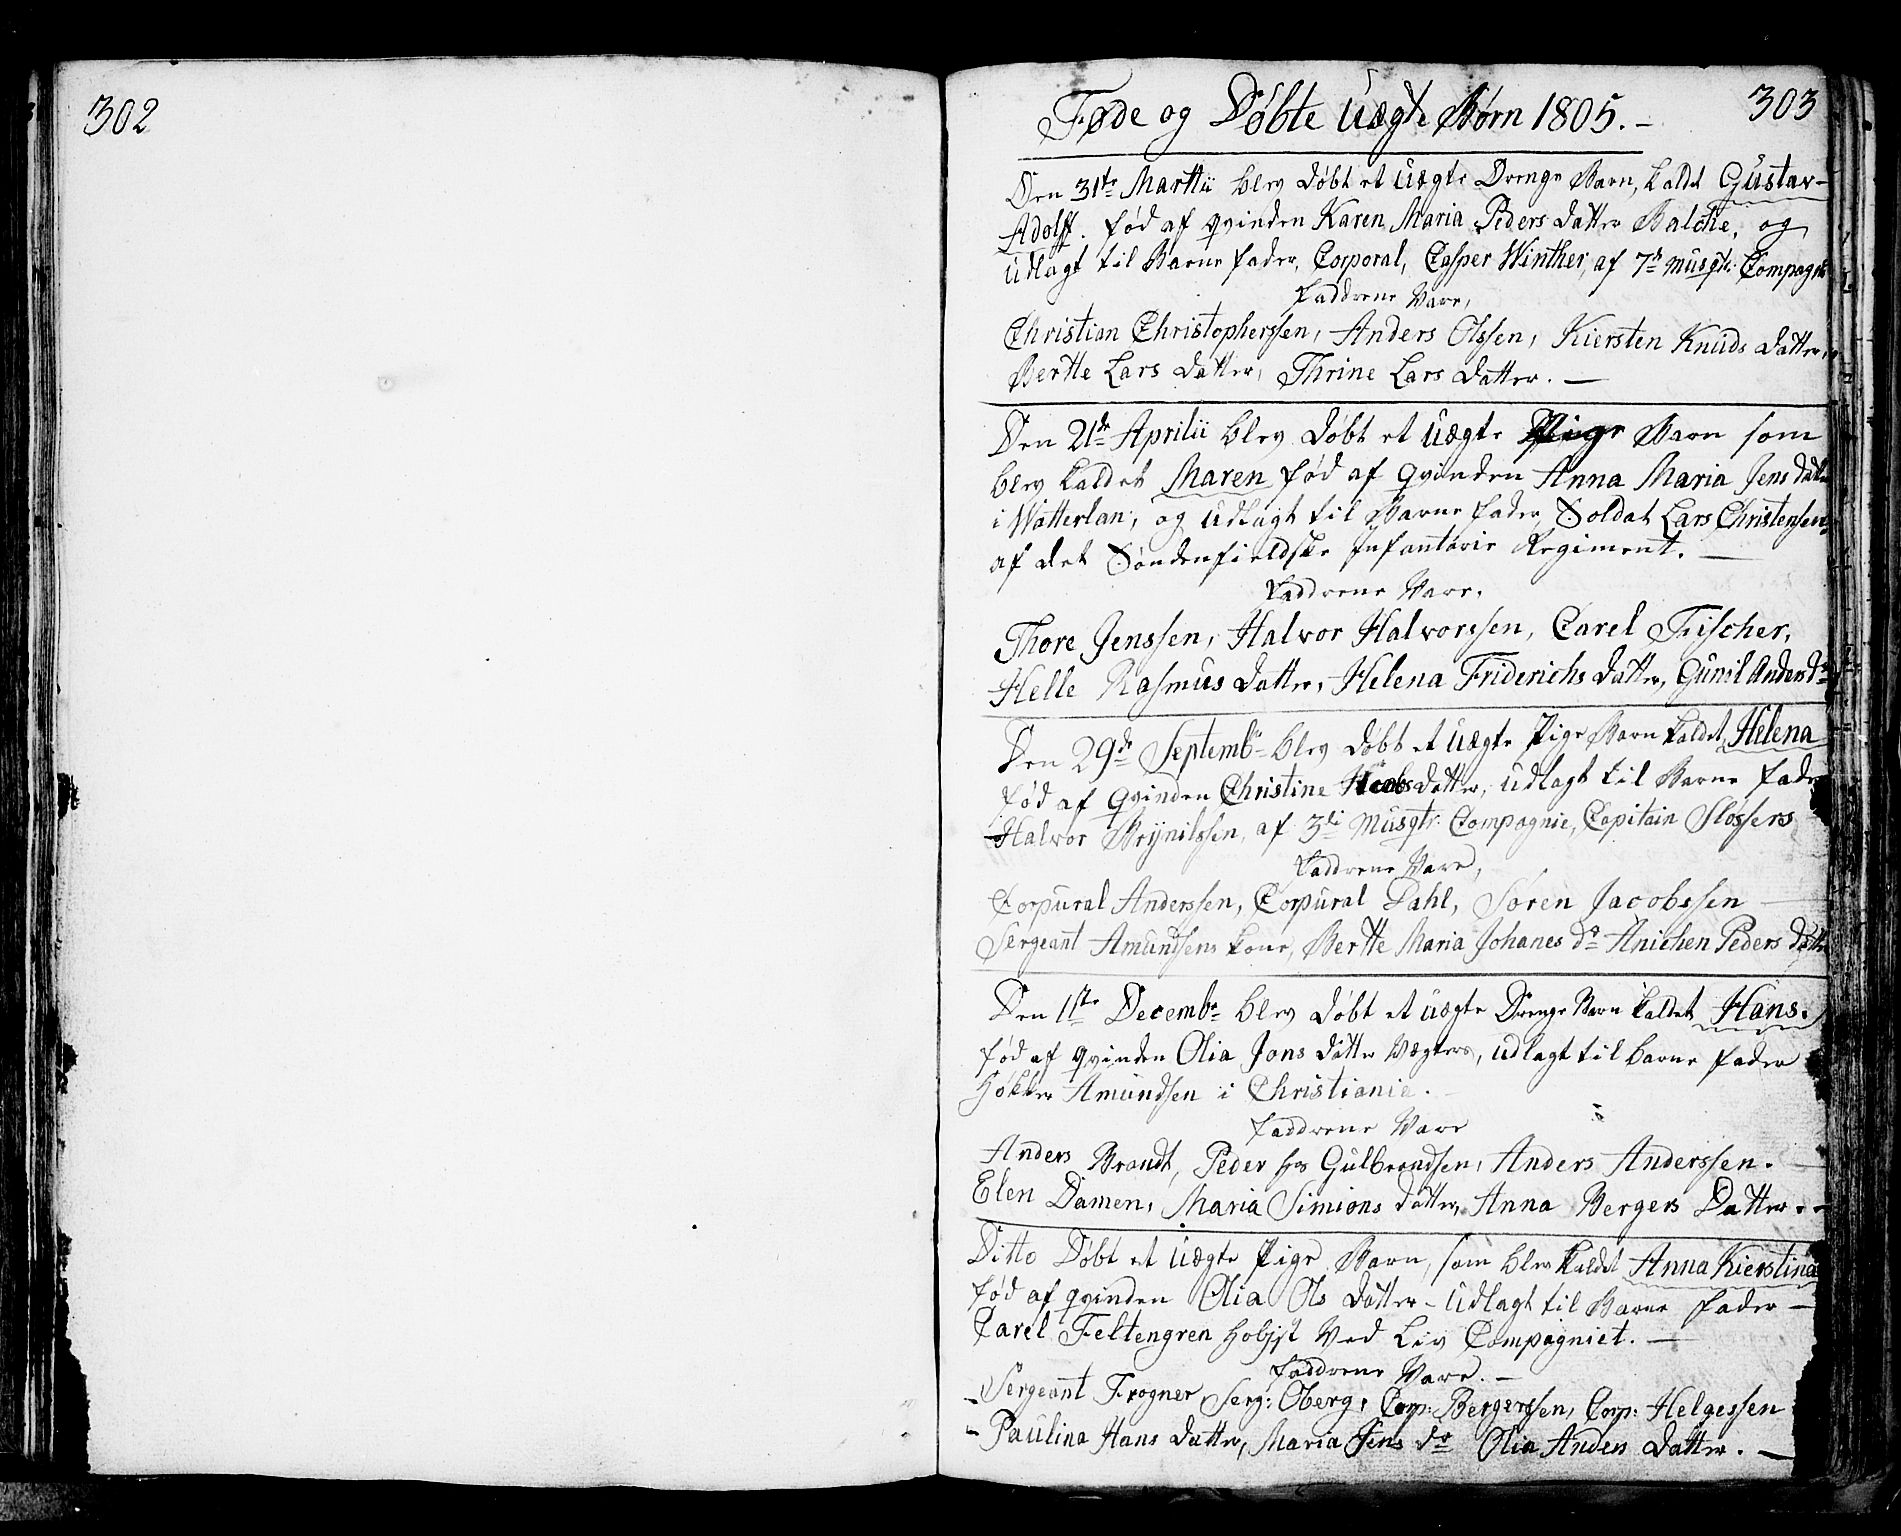 302
303
Føde og Döbte Uægte Börn 1805.-
Den 31te Martii blev döbt et Uægte Drenge Barn, kaldet Gustav-
Adolff. föd af qvinden Karen Maria Peders datter Balche, og
udlagt til Barne fader, Corporal, Casper Winther, af 7de Musqtr: Compagnie
Faddrene Vare,
Christian Christopherssen, Anders Olssen, Kiersten Knuds datter,
Berthe Lars datter, Thrine Lars datter. —
Den 21de Aprilii blev döbt et Uægte Pige Barn som
blev kaldet Maren föd af qvinden Anna Maria Jens datter
i Watterlan, og udlagt til Barne fader, Soldat Lars Christensen,
af det Söndenfieldske Infanterie Regiment. —
Faddrene Vare,
Thore Jenssen, Halvor Halvorssen, Carel Fischer,
Helle Rasmus datter, Helena Friderichs datter, Gunil Anders dr
Den 29de Septembr blev döbt et Uægte Pige Barn kaldet Helena
föd af Qvinden Christine datter, udlagt til Barne fader
Halvor Brynilssen, af 3die Musqtr Compagnie, Capitain Slossers
Faddrene Vare,
Corpural Anderssen, Corpural Dahl, Sören Jacobssen —
Sergeant Amundsens kone, Berthe Maria Johanes dr Anichen Peders datter
Den 1ste Decembr blev döbt et Uægte Drenge Barn kaldet Hans.
föd af qvinden Olia Jons datter Vægters, udlagt til barne fader
Hökker Amundsen i Christiania.
Faddrene Vare
Anders Brandt, Peder hos Gulbrandsen, Anders Anderssen. —
Elen Damen, Maria Simions datter, Anna Bergers Datter. -
Ditto Döbt et Uægte Pige Barn, som blev kaldet Anna Kierstina
föd af qvinden Olia Ols datter - Udlagt til Barne fader —
Carel Feltengren Ved Liv Compagniet. —
Faddrene Vare. —
- Sergeant Frogner, Serg: Oberg, Corp: Bergerssen, Corp: Helgessen
- Paulina Hans datter, Maria Jens dr Olia Anders datter. —